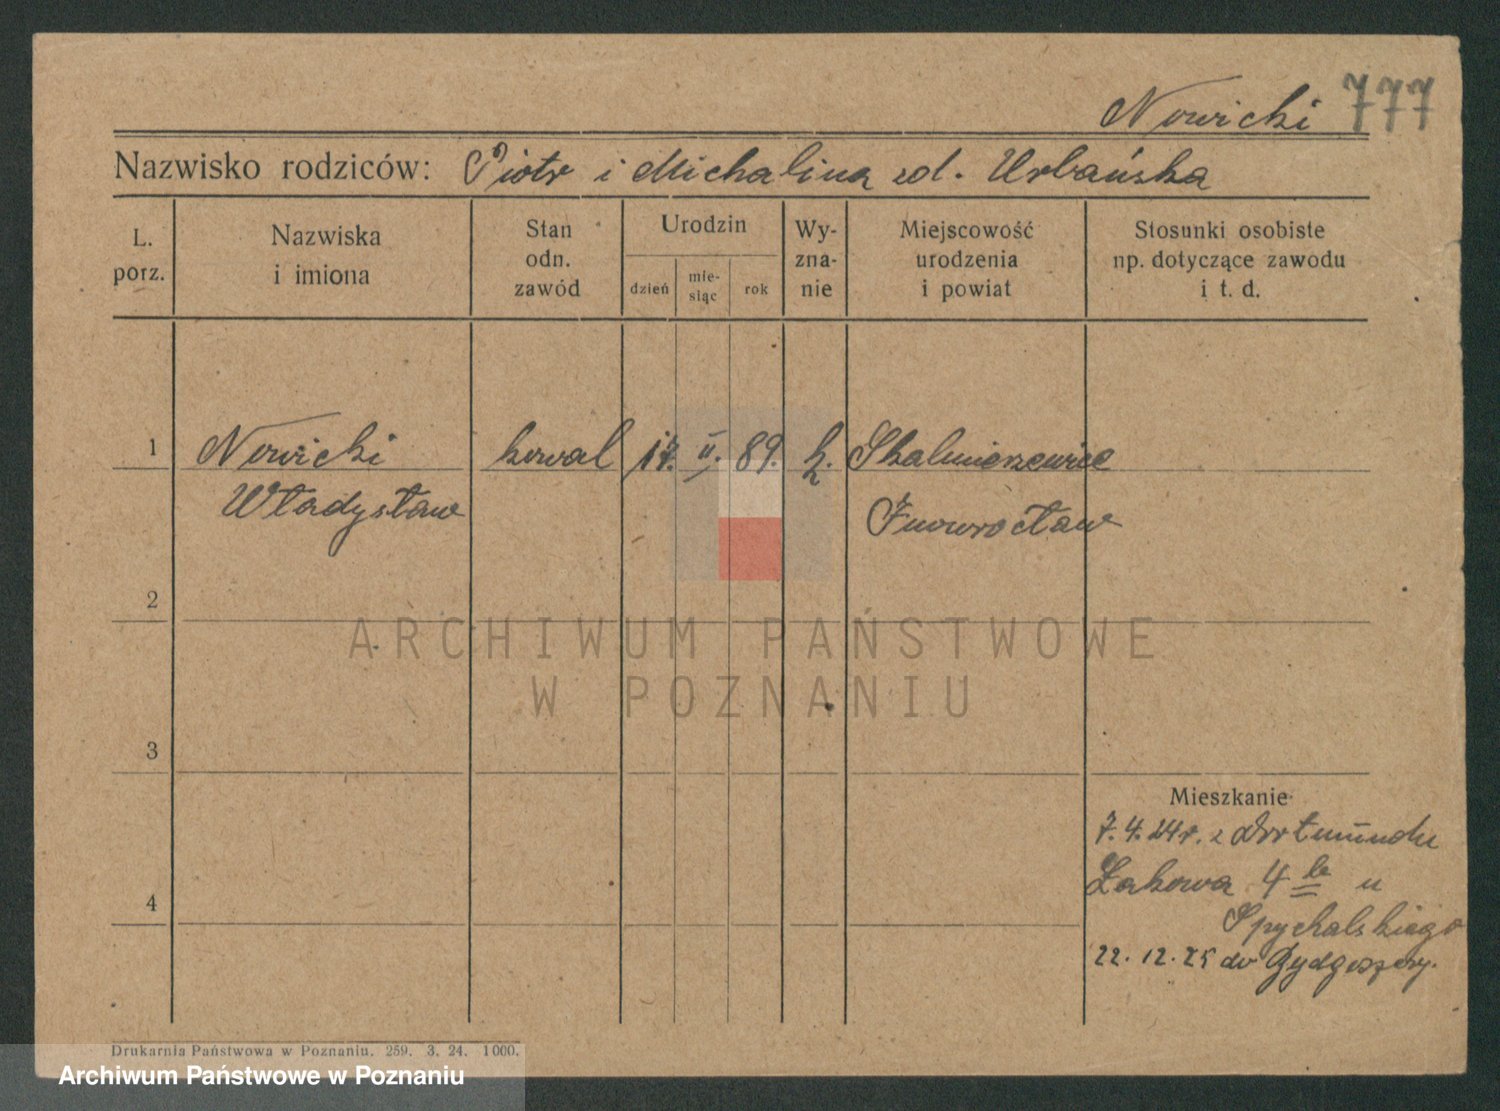 Nowicki 777
Nazwisko rodziców: Piotr i Michalina zd. Urbańska
L. porz.
Nazwiska i imiona
Stan odn. zawód
Urodzin
dzień
mie- siąc
rok
Wy- zna- nie
Miejscowość urodzenia i powiat
Stosunki osobiste np. dotyczące zawodu i t. d.
1 Nowicki kowal 17. II. 89. k. Skalmierzewice
Władysław Inowrocław
2
ARCHIWUM PAŃSTWOWE
W POZNANIU
3
Mieszkanie
7.4.24 r. z Dortmundu
Łakowa 4 u
4
Spychalskiego
22.12.25 do Bydgoszczy.
Drukarnia Państwowa w Poznaniu. 259. 3. 24. 1000.
Archiwum Państwowe w Poznaniu